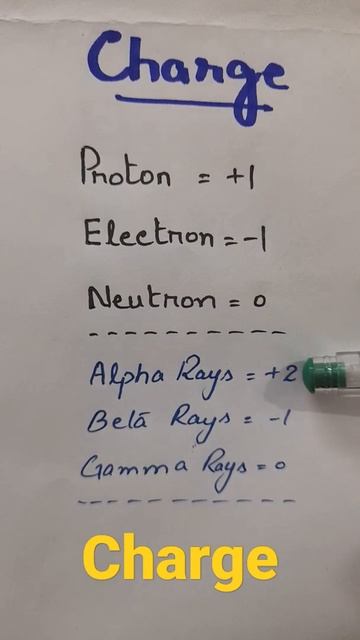 Charge
Proton = +1
Electron = -1
Neutron = 0
Alpha Rays = +2
Beta Rays = -1
Gamma Rays = 0
Charge